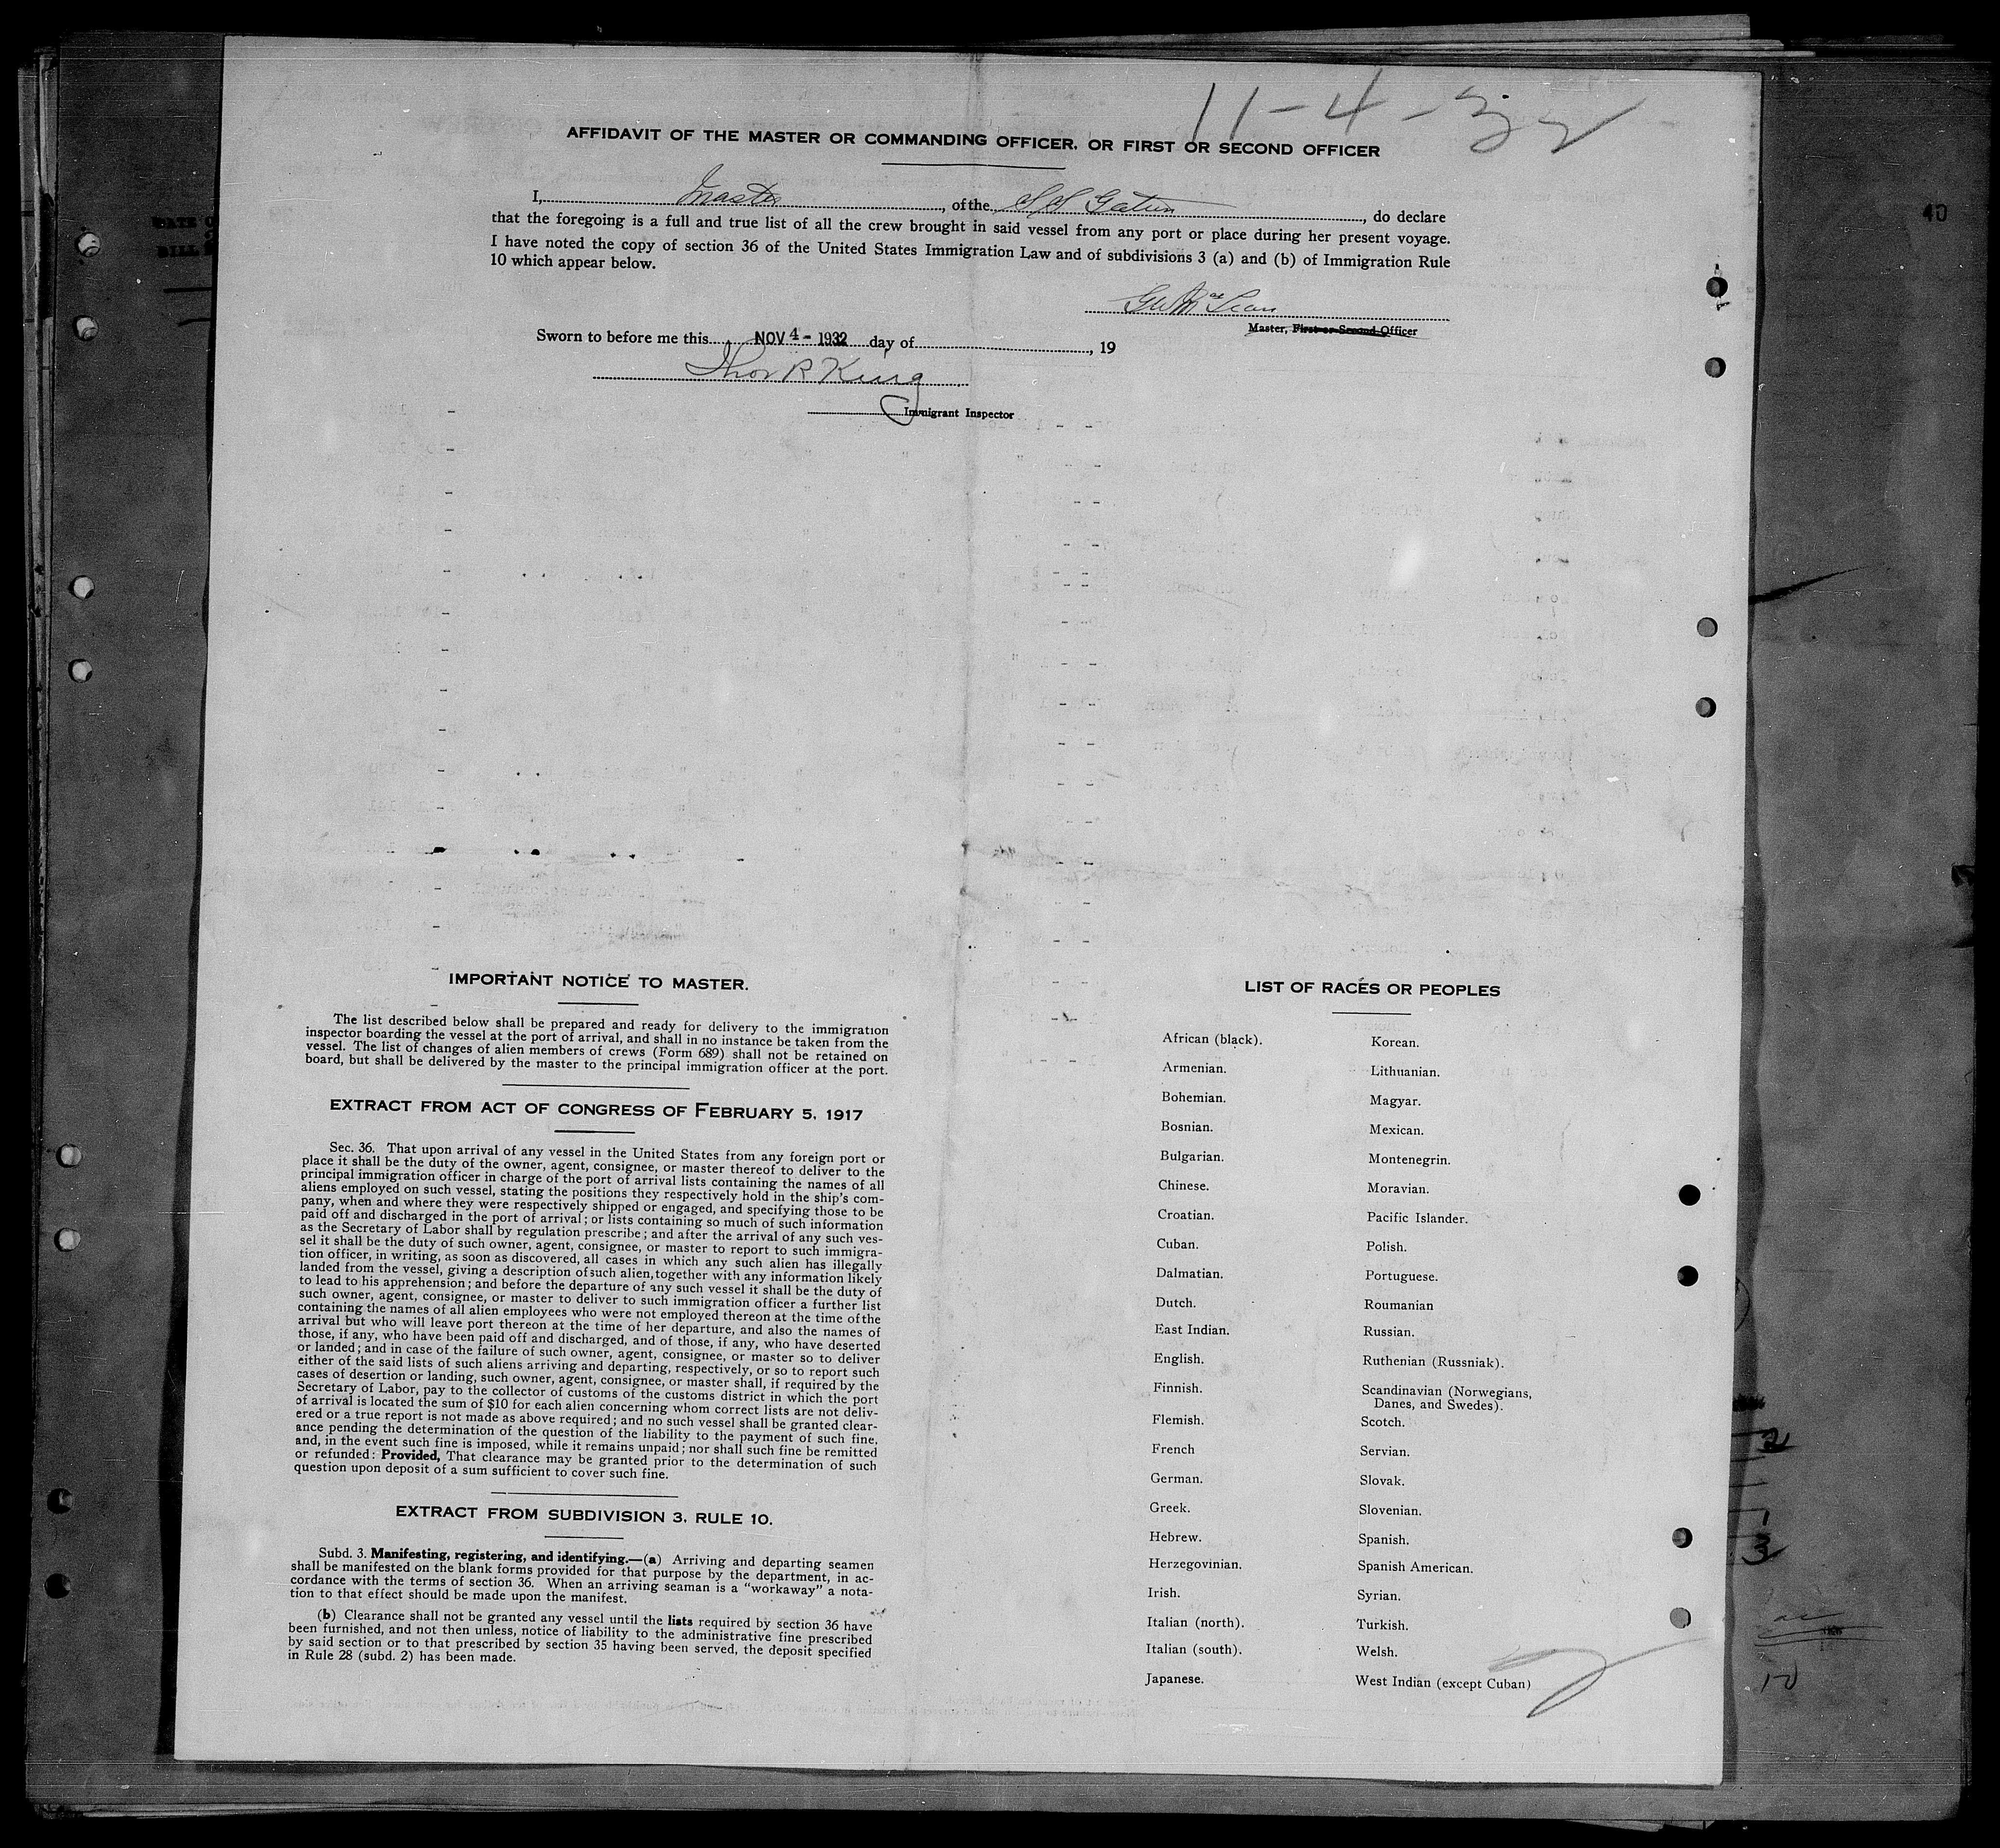 11-4-32
AFFIDAVIT OF THE MASTER OR COMMANDING OFFICER, OR FIRST OR SECOND OFFICER
I, Master, of the SS Gatun, do declare
that the foregoing is a full and true list of all the crew brought in said vessel from any port or place during her present voyage.
I have noted the copy of section 36 of the United States Immigration Law and of subdivisions 3 (a) and (b) of Immigration Rule
10 which appear below.
Master, First or Second Officer
Sworn to before me this NOV 4 - 1932 day of , 19
Thos R King
Immigrant Inspector
IMPORTANT NOTICE TO MASTER.
The list described below shall be prepared and ready for delivery to the immigration
inspector boarding the vessel at the port of arrival, and shall in no instance be taken from the
vessel. The list of changes of alien members of crews (Form 689) shall not be retained on
board, but shall be delivered by the master to the principal immigration officer at the port.
EXTRACT FROM ACT OF CONGRESS OF FEBRUARY 5, 1917
Sec. 36. That upon arrival of any vessel in the United States from any foreign port or
place it shall be the duty of the owner, agent, consignee, or master thereof to deliver to the
principal immigration officer in charge of the port of arrival lists containing the names of all
aliens employed on such vessel, stating the positions they respectively hold in the ship's com-
pany, when and where they were respectively shipped or engaged, and specifying those to be
paid off and discharged in the port of arrival; or lists containing so much of such information
as the Secretary of Labor shall by regulation prescribe; and after the arrival of any such ves-
sel it shall be the duty of such owner, agent, consignee, or master to report to such immigra-
tion officer, in writing, as soon as discovered, all cases in which any such alien has illegally
landed from the vessel, giving a description of such alien, together with any information likely
to lead to his apprehension; and before the departure of any such vessel it shall be the duty of
such owner, agent, consignee, or master to deliver to such immigration officer a further list
containing the names of all alien employees who were not employed thereon at the time of the
arrival but who will leave port thereon at the time of her departure, and also the names of
those, if any, who have been paid off and discharged, and of those, if any, who have deserted
or landed; and in case of the failure of such owner, agent, consignee, or master so to deliver
either of the said lists of such aliens arriving and departing, respectively, or so to report such
cases of desertion or landing, such owner, agent, consignee, or master shall, if required by the
Secretary of Labor, pay to the collector of customs of the customs district in which the port
of arrival is located the sum of $10 for each alien concerning whom correct lists are not deliv-
ered or a true report is not made as above required; and no such vessel shall be granted clear-
ance pending the determination of the question of the liability to the payment of such fine,
and, in the event such fine is imposed, while it remains unpaid; nor shall such fine be remitted
or refunded: Provided, That clearance may be granted prior to the determination of such
question upon deposit of a sum sufficient to cover such fine.
EXTRACT FROM SUBDIVISION 3, RULE 10.
Subd. 3. Manifesting, registering, and identifying.—(a) Arriving and departing seamen
shall be manifested on the blank forms provided for that purpose by the department, in ac-
cordance with the terms of section 36. When an arriving seaman is a "workaway" a nota-
tion to that effect should be made upon the manifest.
(b) Clearance shall not be granted any vessel until the lists required by section 36 have
been furnished, and not then unless, notice of liability to the administrative fine prescribed
by said section or to that prescribed by section 35 having been served, the deposit specified
in Rule 28 (subd. 2) has been made.
LIST OF RACES OR PEOPLES
African (black).
Armenian.
Bohemian.
Bosnian.
Bulgarian.
Chinese.
Croatian.
Cuban.
Dalmatian.
Dutch.
East Indian.
English.
Finnish.
Flemish.
French
German.
Greek.
Hebrew.
Herzegovinian.
Irish.
Italian (north).
Italian (south).
Japanese.
Korean.
Lithuanian.
Magyar.
Mexican.
Montenegrin.
Moravian.
Pacific Islander.
Polish.
Portuguese.
Roumanian
Russian.
Ruthenian (Russniak).
Scandinavian (Norwegians,
Danes, and Swedes).
Scotch.
Servian.
Slovak.
Slovenian.
Spanish.
Spanish American.
Syrian.
Turkish.
Welsh.
West Indian (except Cuban)
40